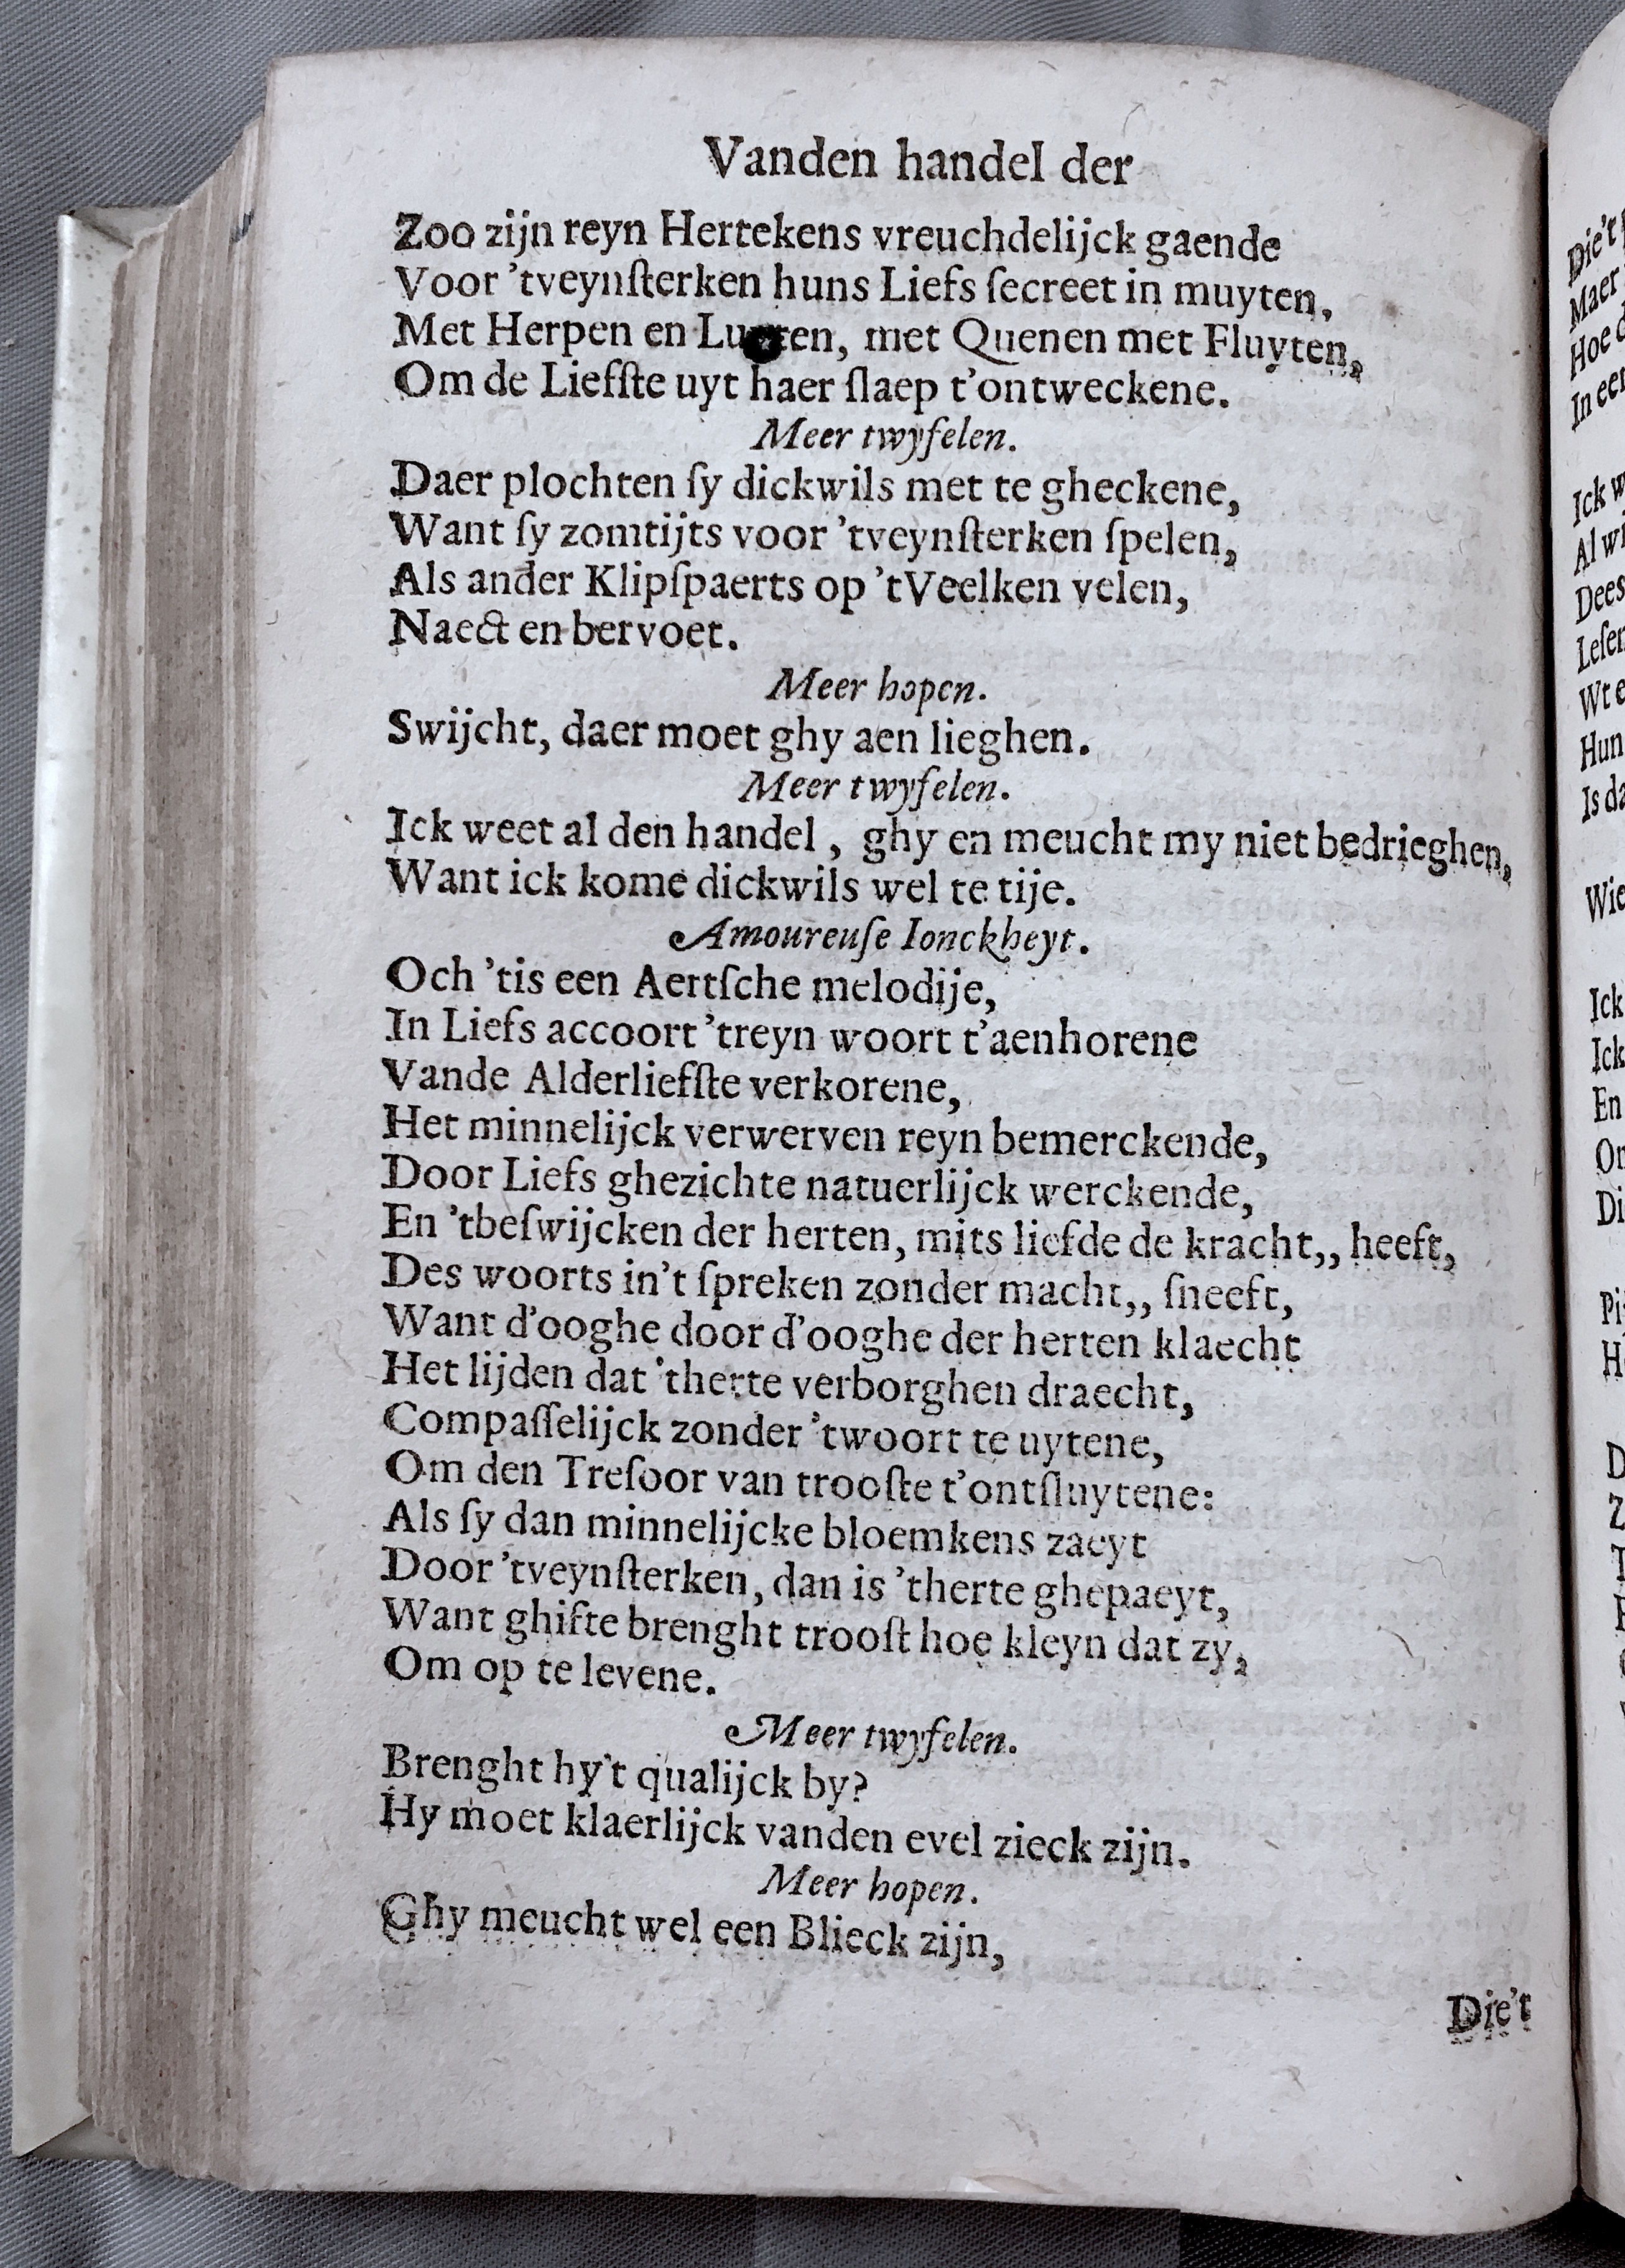 Vanden handel der
Zoo zijn reyn Hertekens vreuchdelijck gaende
Voor 'tveynſterken huns Liefs ſecreet in muyten,
Met Herpen en met Quenen met Fluyten,
Om de Liefſte uyt haer ſlaep t'ontweckene.
Meer twyfelen.
Daer plochten ſy dickwils met te gheckene,
Want ſy zomtijts voor 'tveynſterken ſpelen,
Als ander Klipſpaerts op 'tVeelken velen,
Naect en bervoet.
Meer hopen.
Swijcht, daer moet ghy aen lieghen.
Meer twyfelen.
Ick weet al den handel, ghy en meucht my niet bedrieghen,
Want ick kome dickwils wel te tije.
Amoureuſe Ionckheyt.
Och 'tis een Aertſche melodije,
In Liefs accoort 'treyn woort t'aenhorene
Vande Alderliefſte verkorene,
Het minnelijck verwerven reyn bemerckende,
Door Liefs ghezichte natuerlijck werckende,
En 'tbeſwijcken der herten, mits liefde de kracht,, heeft,
Des woorts in't ſpreken zonder macht,, ſneeft,
Want d'ooghe door d'ooghe der herten klaecht
Het lijden dat 'therte verborghen draecht,
Compaſſelijck zonder 'twoort te uytene,
Om den Treſoor van trooſte t'ontſluytene:
Als ſy dan minnelijcke bloemkens zaeyt
Door 'tveynſterken, dan is 'therte ghepaeyt,
Want ghifte brenght trooſt hoe kleyn dat zy,
Om op te levene.
Meer twyfelen.
Brenght hy't qualijck by?
Hy moet klaerlijck vanden evel zieck zijn.
Meer hopen.
Ghy meucht wel een Blieck zijn,
Die't